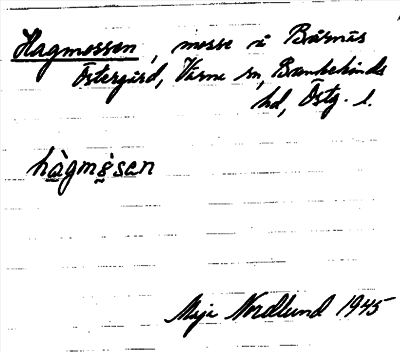 Hagmossen, mosse i Båsnäs
Östergård, Värna sn, Bankekinds
hd, Östg. l.
hàgmòsen
Maja Nordlund 1945